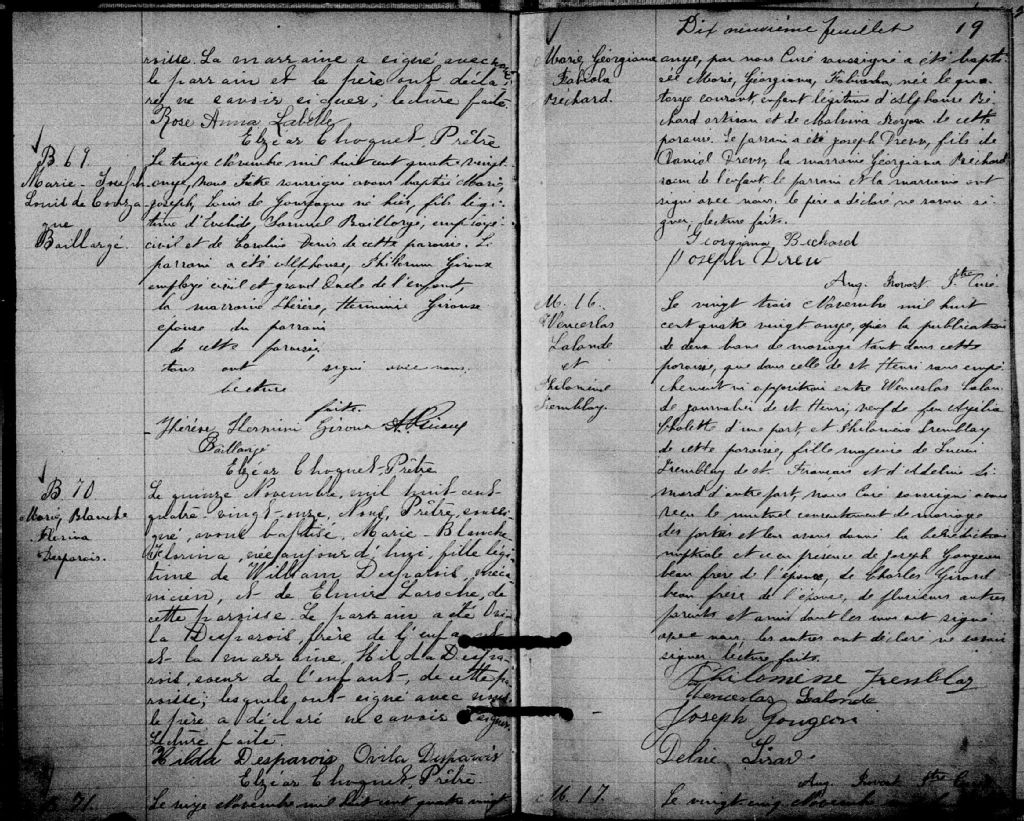 roisse. La marraine a signé avec nous
le parrain et la père ont décla-
ré ne savoir signer; lecture faite
Rose Anna Labelle
Elzéar Choquet, Prêtre
B 69
Marie-Joseph
Louis de Gonza
gue
Baillargé.
Le treize Novembre mil huit cent quatre vingt
onze, Nous Prêtre soussigné avons baptisé Marie,
Joseph, Louis de Gonzague né hier, fils légi-
time d'Euclide, Samuel Baillargé, employé
civil et de Caroline Denis de cette paroisse. Le
parrain a été Alphonse, Philorum Giroux
employé civil et grand Oncle de l'enfant,
la marraine Thérèse, Herminie Giroux
épouse du parrain
de cette paroisse,
tous ont signé avec nous.
Lecture
faite.
Thérèse Hermini Giroux
Baillargé
Elzéar Choquet, Prêtre
B 70
Marie, Blanche
Florina
Desparois.
Le quinze Novembre, mil huit-cent
quatre-vingt-onze, Nous, Prêtre, soussi-
gné, avons baptisé, Marie-Blanche
Florina, née aujourd'hui, fille légi
time de William Desparois, méca
nicien, et de Elmire Laroche, de
cette paroisse. Le parrain a été Ovi-
la Desparois, frère de l'enfant
et la marraine, Hilda Despa-
rois, soeur de l'enfant, de cette pa-
roisse; lesquels, ont signé avec nous
le père a déclaré ne savoir signer.
Lecture faite
Hilda Desparois Ovila Desparois
Elzéar Choquet, Prêtre.
B. 71.
Le seize Novembre mil huit cent quatre vingt
Dix neuvième feuillet 19
Marie, Georgiana
Fabiola
Béchard.
onze, par nous Curé soussigné a été bapti-
sée Marie, Géorgiana, Fabiola, née le qua-
torze courant, enfant légitime d'Alphonse Bé-
chard artisan et de Malvina de cette
paroisse. Le parrain a été Joseph Drew, fils de
Daniel Drew, la marraine Géorgiana Béchard
soeur de l'enfant. le parrain et la marraine ont
signé avec nous. le père a déclaré ne savoir si-
gner, lecture faite.
Georgiana Bechard
Joseph Drew
Aug. Provost Ptre Curé
M. 16.
Wencerlas
Lalonde
et
Philomène
Tremblay.
Le vingt trois Novembre mil huit
cent quatre vingt onze, après la publication
de deux bans de mariage tant dans cette
paroisse, que dans celle de St Henri sans empê-
chement ni opposition entre Wencerlas Lalon-
de journalier de St Henri, veuf de feu
d'une part, et Philomène Tremblay
de cette paroisse, fille majeure de Lucien
Tremblay de St François et d'Adeline Si-
mard d'autre part, nous Curé soussigné avons
reçu le mutuel consentement de mariage
des parties et leur avons donné la bénédiction
nuptiale et ce en présence de Joseph Gougeon
beau frère de l'époux, de Charles Girard
beau frère de l'épouse, de plusieurs autres
parents et amis dont les uns ont signé
avec nous, les autres ont déclaré ne savoir
signer. lecture faite.
Philomene Tremblay
Wencerlas Lalonde
Joseph Gougeon
Delvie
Aug. Provost Ptre Curé
M. 17.
Le vingt cinq Novembre